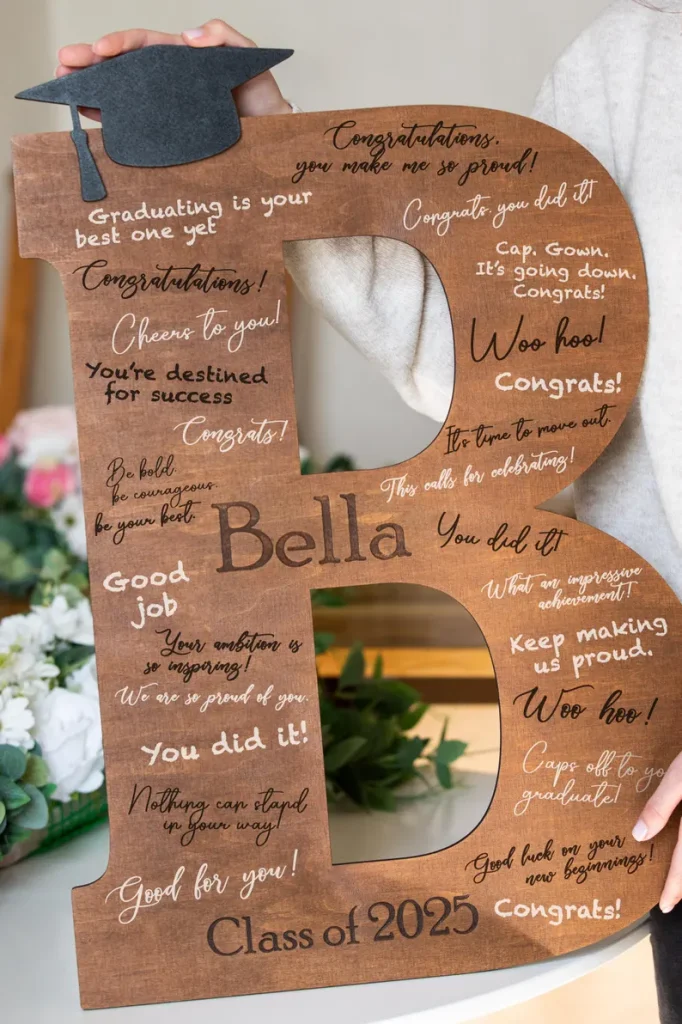 Congratulations,
you make me so proud!
Graduating is your
best one yet
Congrats, you did it!
Cap. Gown.
It's going down.
Congrats!
Congratulations!
Cheers to you!
Woo hoo!
You're destined
for success
Congrats!
Congrats!
It's time to move out.
Be bold,
be courageous,
be your best.
This calls for celebrating!
Bella
You did it!
Good
job
What an impressive
achievement!
Your ambition is
so inspiring!
Keep making
us proud.
We are so proud of you.
Woo hoo!
You did it!
Caps off to you
graduate!
Nothing can stand
in your way!
Good luck on your
new beginnings!
Good for you!
Class of 2025
Congrats!